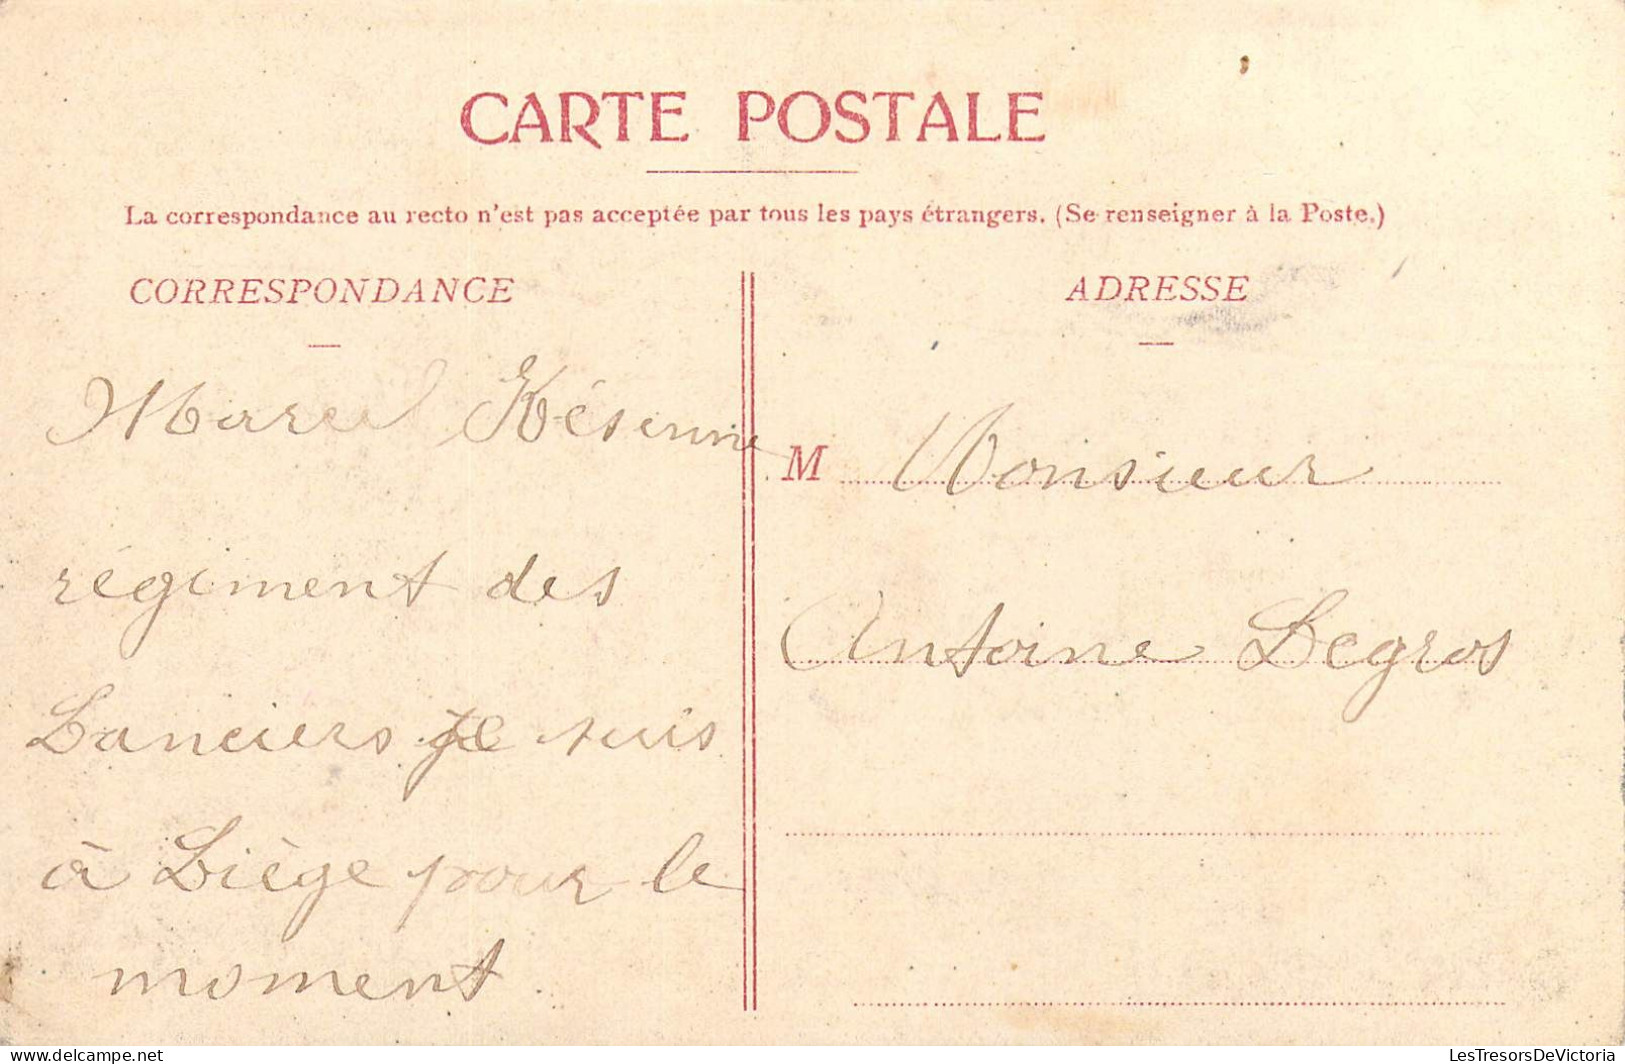 CARTE POSTALE
La correspondance au recto n'est pas acceptée par tous les pays étrangers. (Se renseigner à la Poste.)
CORRESPONDANCE
Marcel Késenne
régiment des
Lanciers je suis
à Liège pour le
moment.
ADRESSE
M Monsieur
Antoine Legros
LesTresorsDeVictoria
www.delcampe.net